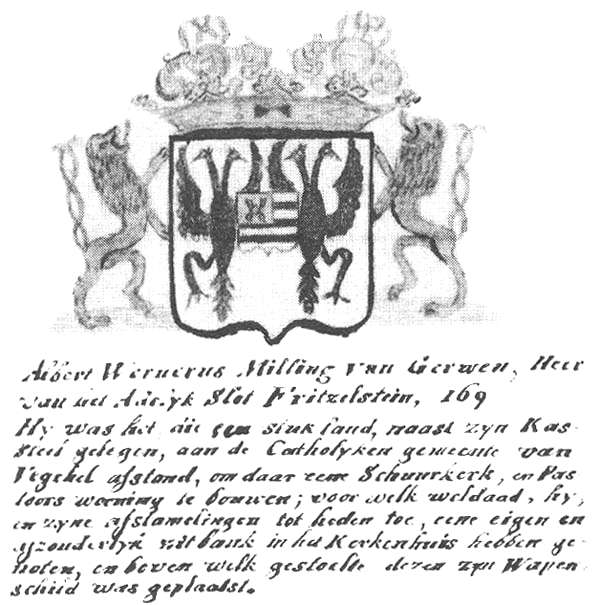 Albert Wernerus Milling van Gerwen, Heer
van het Adelyk Slot Fritzelstein, 169
Hy was het, die een stuk land, naast zyn Kas-
steel gelegen, aan de Catholyken gemeente van
Veghel afstond, om daar eene Schuurkerk, en Pas
toors wooning te bouwen; voor welk weldaad, hy,
en zyne afstamelingen tot heden toe, eene eigen en
afzonderlyk zitbank in het Kerkenhuis hebben ge-
noten, en boven welk gestoelte dezen zyn Wapen
schild was geplaatst.